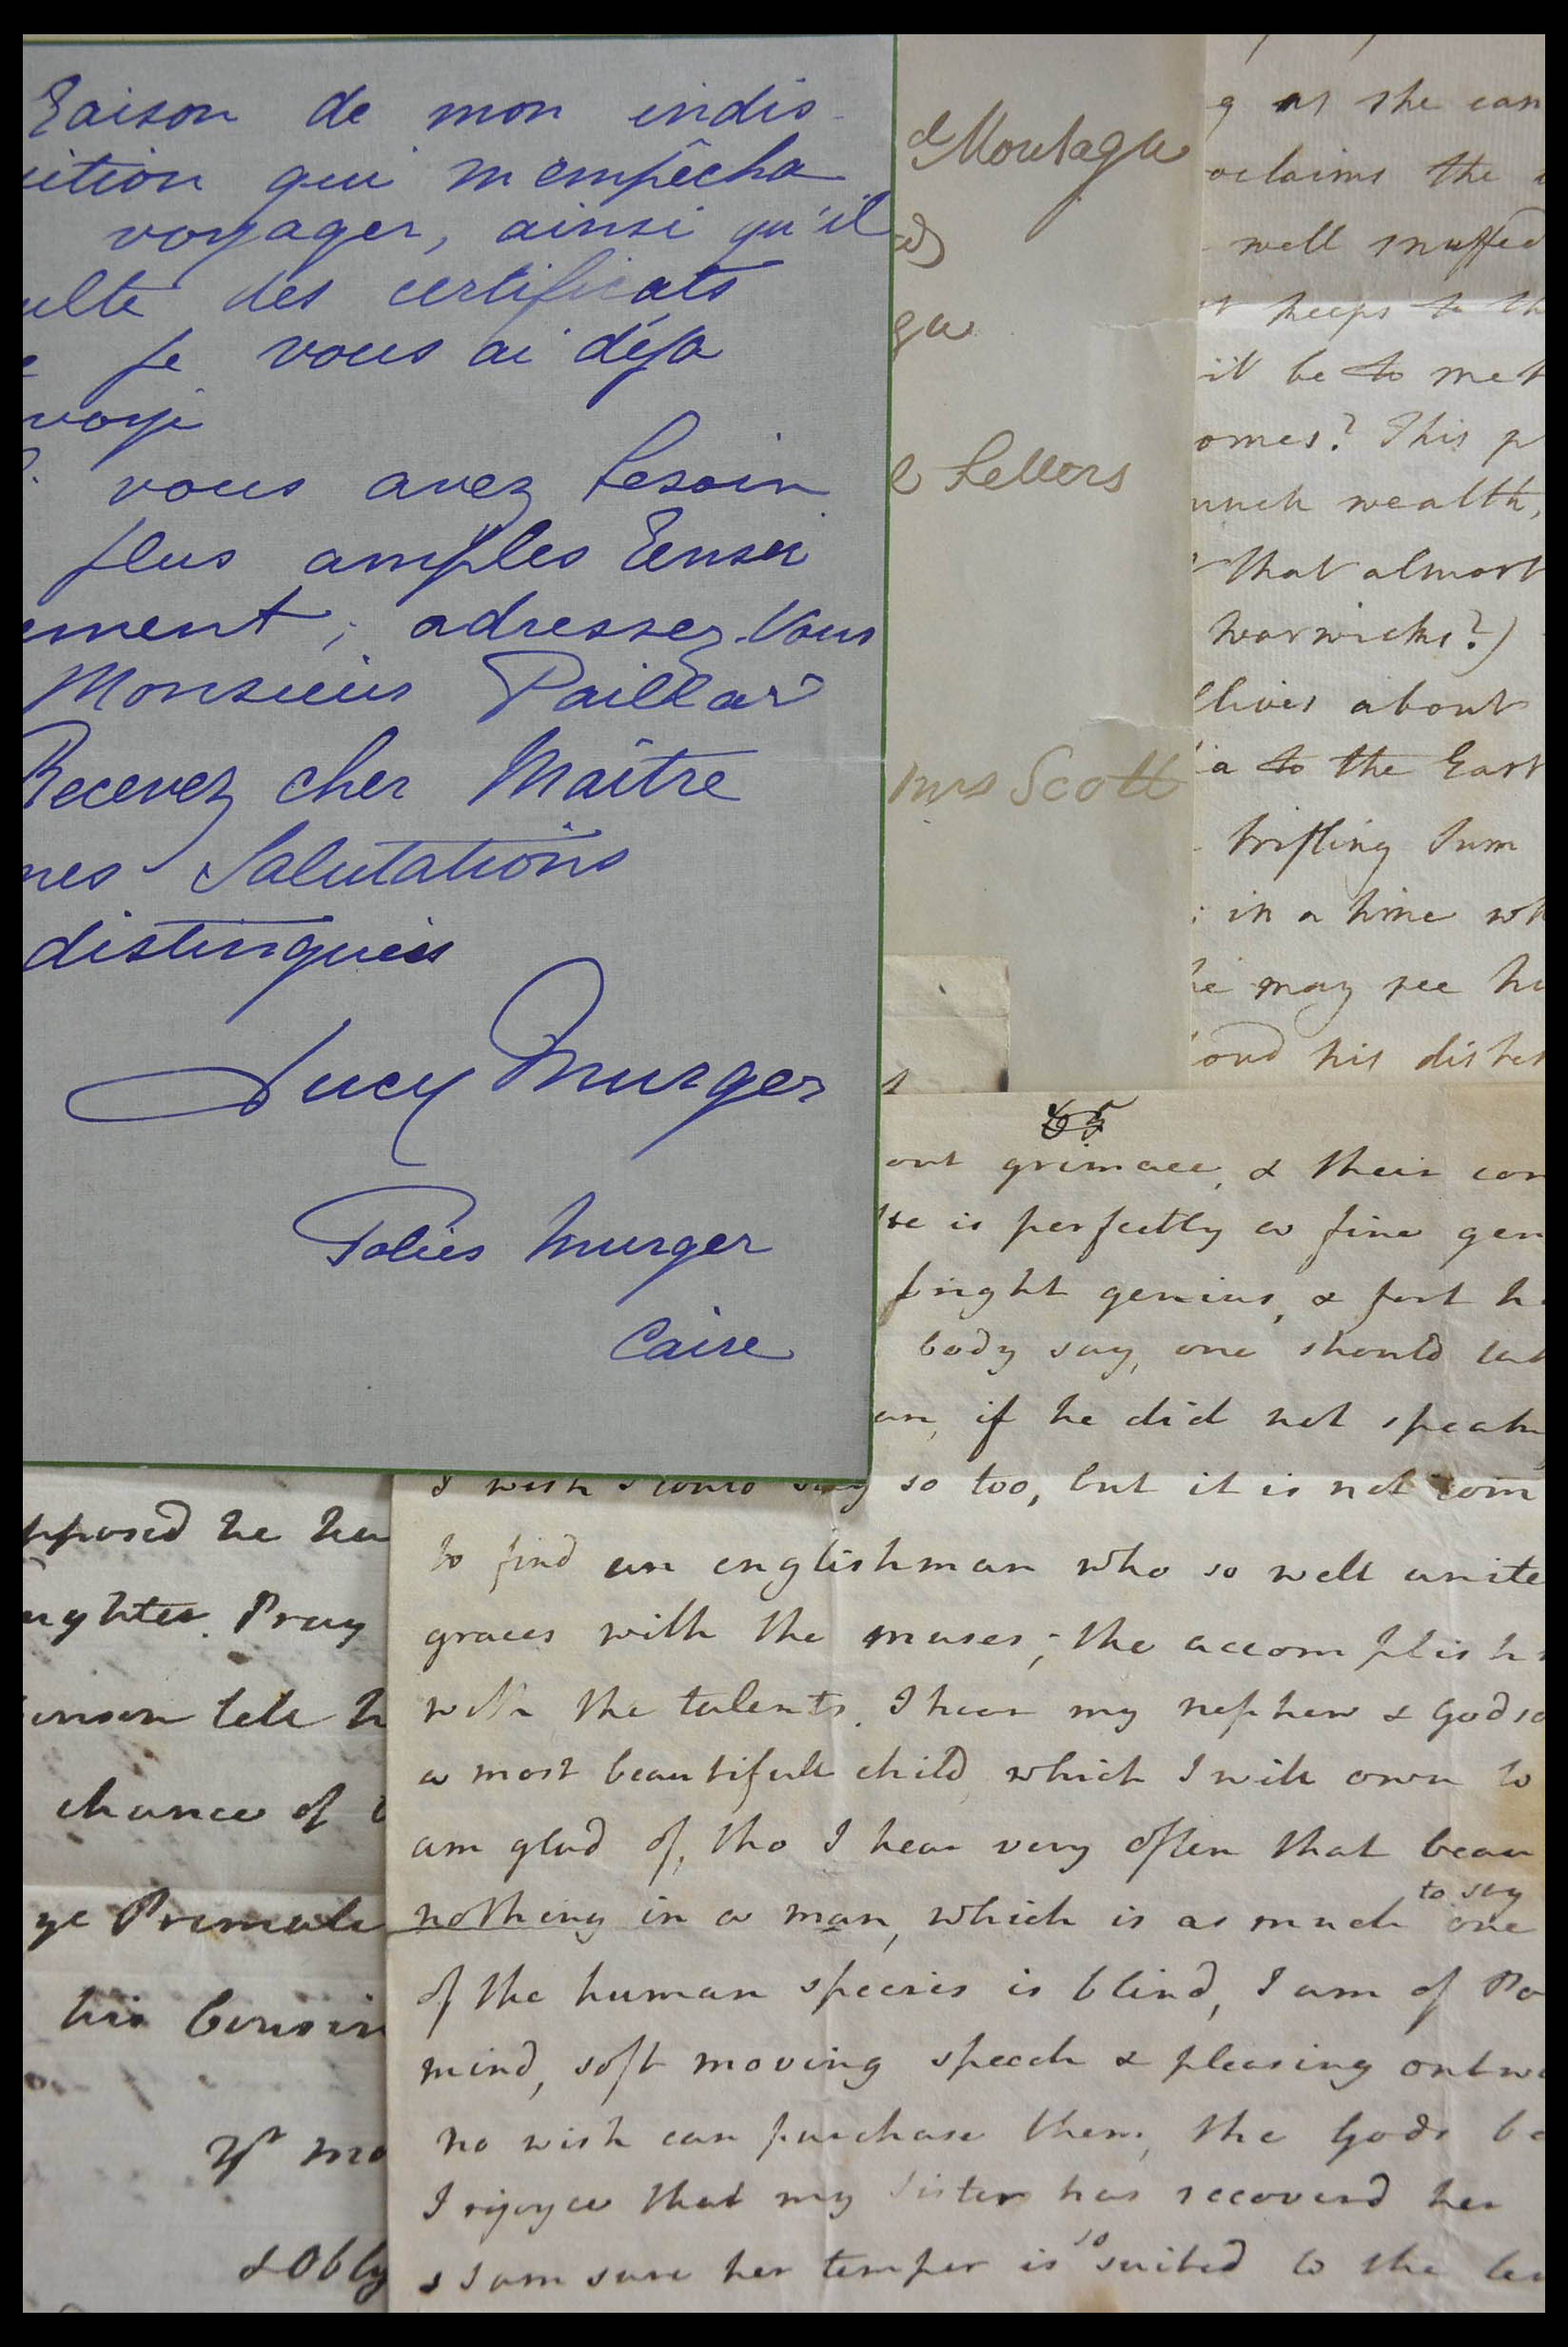 Raison de mon indis-
sition qui m'empêcha
voyager, ainsi qu'il
ulte des certificats
e je vous ai déja
voyé
vous avez besoin
plus amples rensei
ement, adressez-vous
Monsieur Paillar
Recevez cher Maître
mes Salutations
distinguées
Lucy Murger
Folies Murger
Caire
d Montagu
gu
Letters
Mrs Scott
g as she can
oclaims the
well snuffed
keeps to th
it be to met
omes? This p
much wealth,
that almost
warwicks?)
lives about
a to the East
trifling Sum
in a time wh
he may see hi
his distres
65
out grimace, & their con
He is perfectly a fine gen
bright genius, & fort h
body say, one should tak
an, if he did not speak
I wish I could say so too, but it is not com
to find an englishman who so well unite
graces with the muses, the accomplish
with the talents. I hear my nephew & Godso
a most beautifull child, which I will own to
am glad of, tho I hear very often that beau
nothing in a man, which is as much to say one
of the human species is blind, I am of Po
mind, soft moving speech & pleasing outwa
no wish can purchase them, the Gods be
I rejoyce that my Sister has recoverd her
& I am sure her temper is so suited to the
pposed he ha
ughter. Pray
inson tell h
chance of
ye Primate
his Cousin
yr mo
& Obly